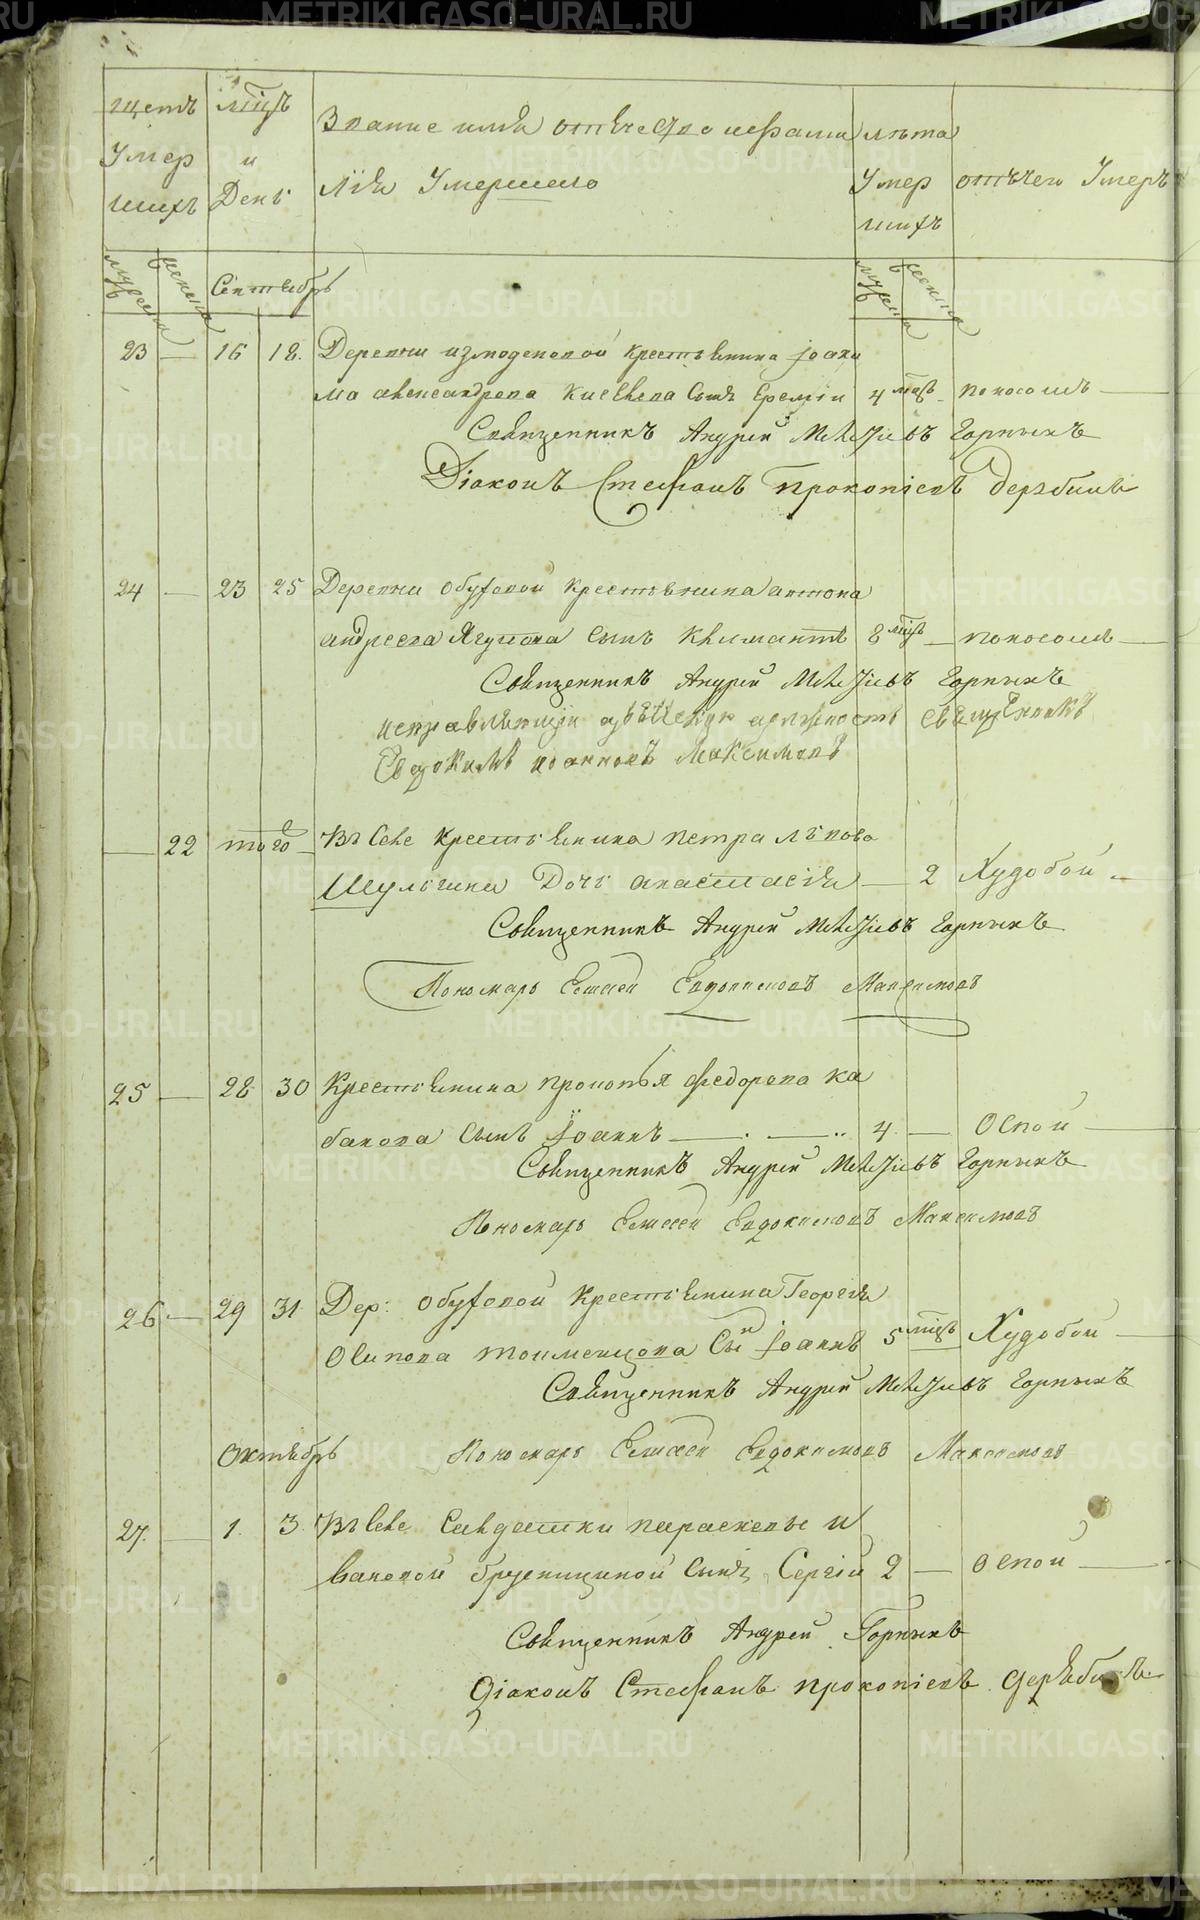 METRIKI.GASO-URAL.RU
щетъ
Умер
шихъ
мцъ
и
День
Звание имя отечество и фами
лия Умершего
лѣта
Умер
шихъ
отъ чего Умеръ
мужеска
женска
Сентябрь
мужеска
женска
23 — 16 18. Деревни крестьянина Іоаки
ма александрова Киселева Сынъ Еремiи 4 мцъ поносомъ —
Священникъ Андрей Горныхъ
Діаконъ Стефанъ Прокопіевъ Дерябинъ
24 — 23 25 Деревни Обуховой Крестьянина антона
андреева Ягупова сынъ Климантъ 8 мцъ — поносомъ —
Священникъ Андрей Горныхъ
исправляющій должность свещенникъ
Евдокимъ иоанновъ Максимовъ
— 22 того — Въ Селе Крестьянина петра
Шульгина Дочь анастасія — 2 Худобой —
Священникъ Андрей Горныхъ
Пономарь Елисей Евдокимовъ Максимовъ
25 — 28 30 Крестьянина прокопья федорова ка
бакова сынъ Іоаннъ — . — .. 4 — Оспой —
Священникъ Андрей Горныхъ
Пономарь Елисей Евдокимовъ Максимовъ
26 — 29 31 Дер: Обуховой Крестьянина Георгія
Осипова Сын Іоаннъ 5 мцъ Худобой —
Священникъ Андрей Горныхъ
Октябрь Пономарь Елисей Евдокимовъ Максимовъ
27. — 1. 3. Въ Селе Салдатки параскевы и
вановой брусницыной Сынъ Сергій 2 — оспой —
Священникъ Андрей Горныхъ
Діаконъ Стефанъ прокопіевъ Дерябинъ